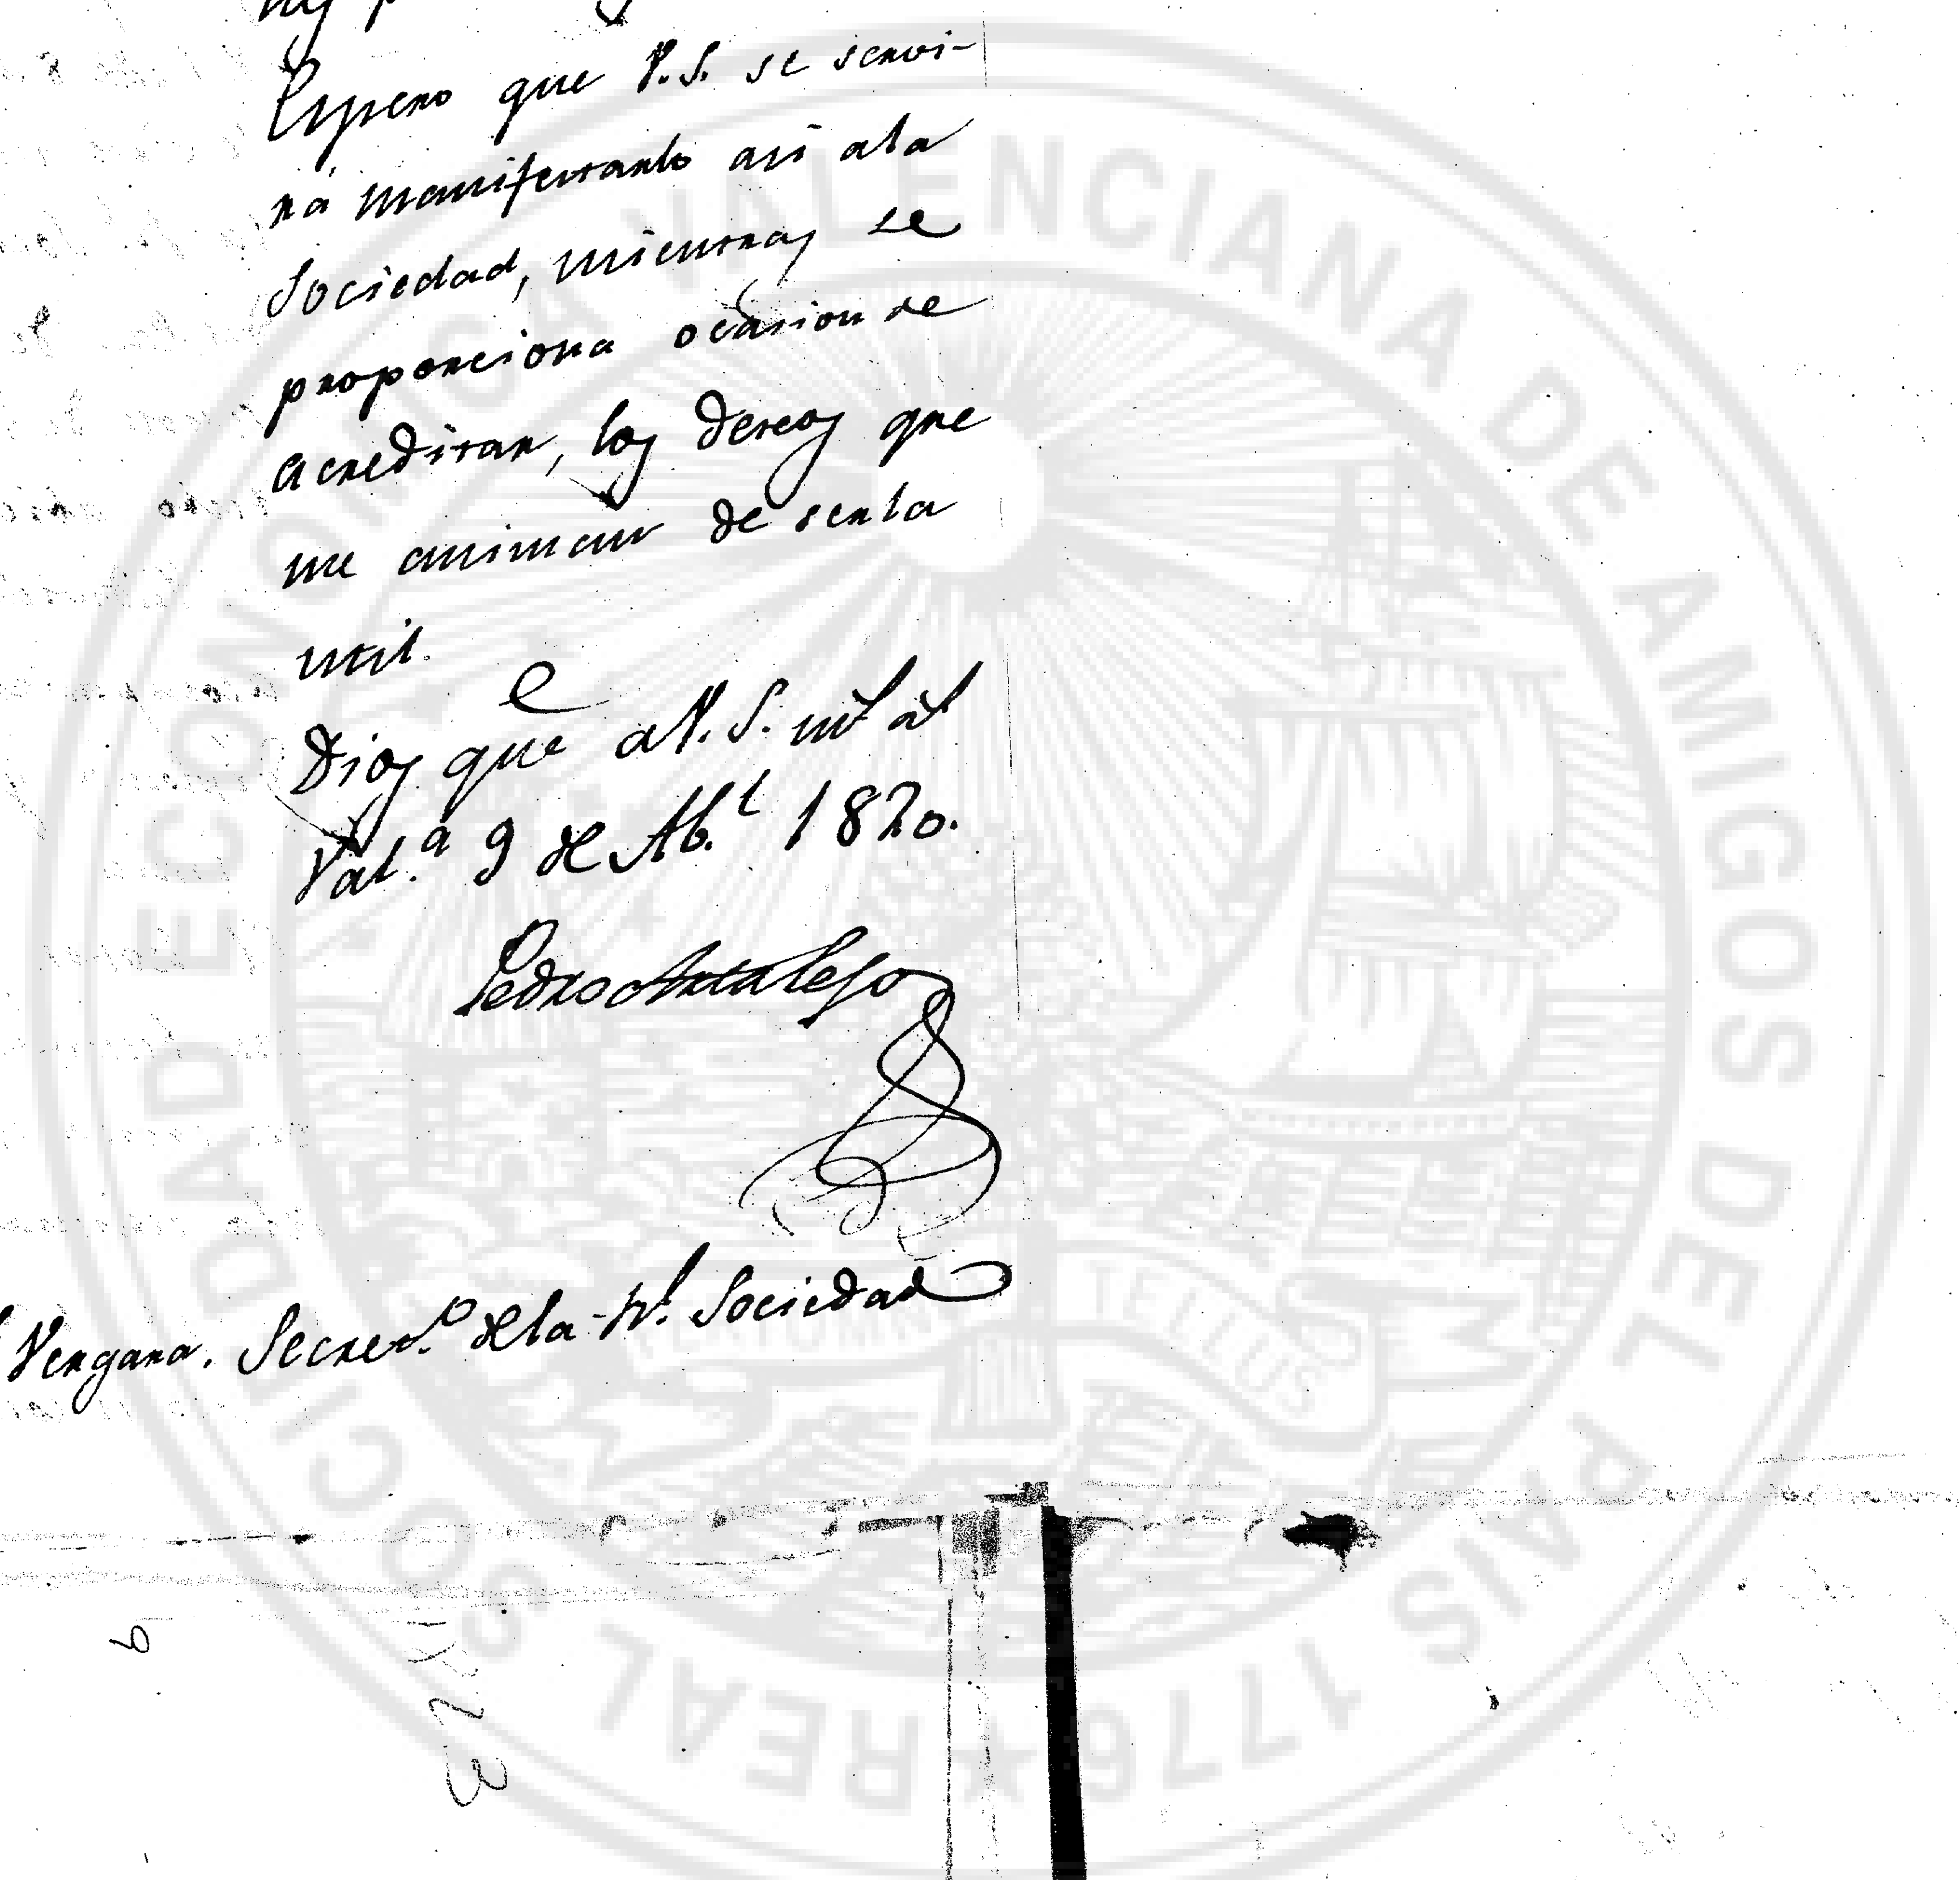 Espero que V.S. se servi-
rá manifestarlo asi ala
Sociedad, mientras se
proporciona ocasion de
acreditar, los deseos que
me animan de serla
util.
Dios gue a V.S. ms. as.
Val.a 9 de Ab.l 1820.
Pedro Artalejo
Vergara. Secret.o dela Rl. Sociedad
REAL SOCIEDAD ECONOMICA VALENCIANA DE AMIGOS DEL PAIS 1776